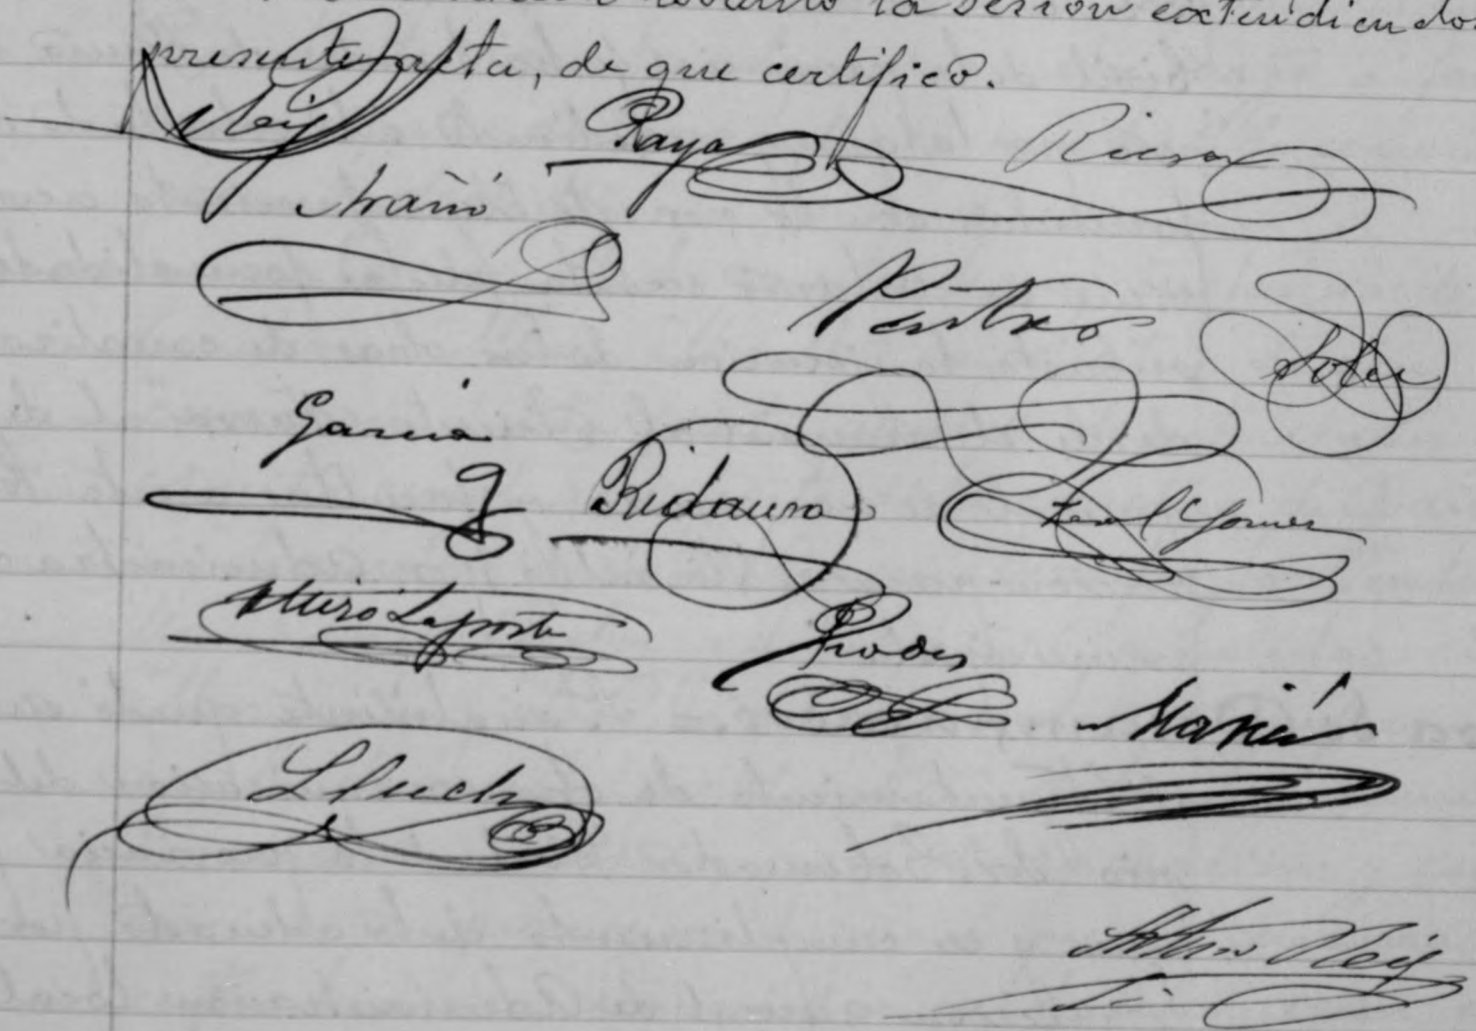 la sesión extendiendo
presente acta, de que certifico.
Reig Raya Riera
Arañó
Pastor Soler
García
Ridaura Gomez
Arturo Laporta
Prodes
María
Lluch
Arturo Reig